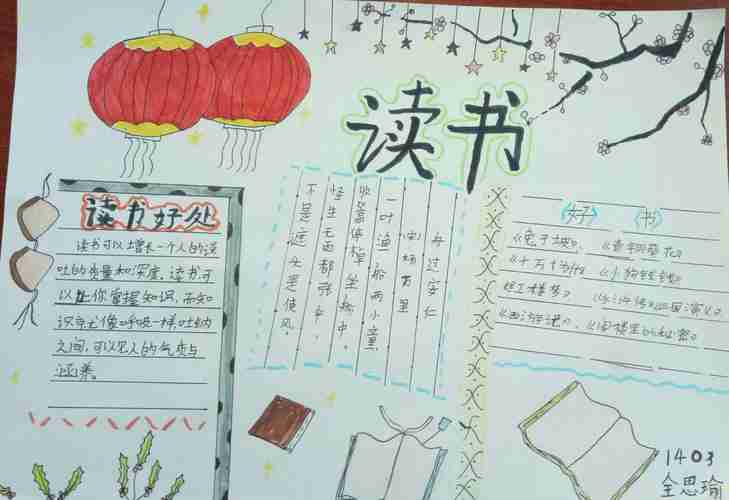 读书
读书好处
读书可以增长一个人的谈
吐的质量和深度。读书可
以让你掌握知识,而知
识就像呼吸一样吐纳
之间,可以见人的气质与
涵养。
舟过安仁
宋 杨万里
一叶渔船两小童,
收篙停棹坐船中。
怪生无雨都张伞,
不是遮头是使风。
《好》 《书》
《兔子坡》、《青铜葵花》
《十万个为什》、《小狗钱钱》
红楼梦》《水浒传》《三国演义》
《西游记》、《阁楼里的秘密》
1403
全思瑜